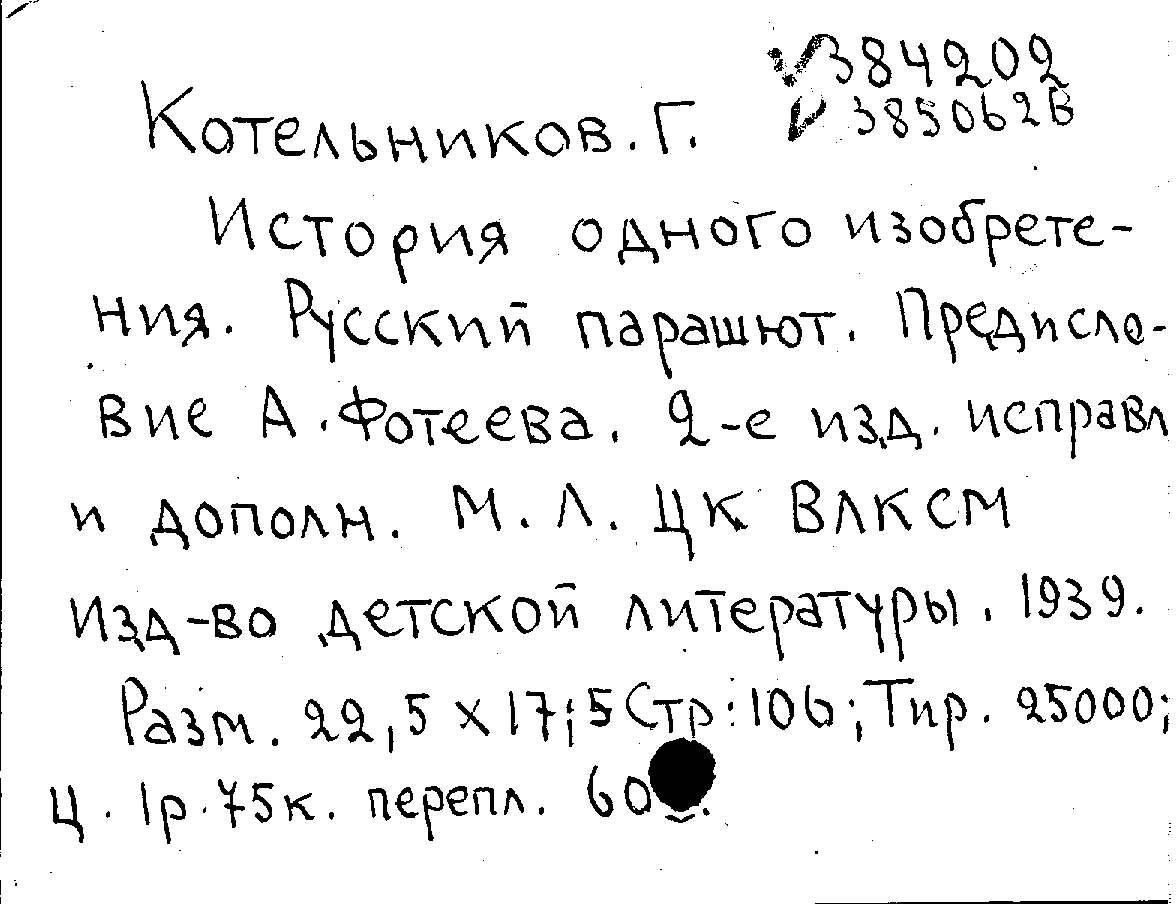 384202
385062В
Котельников. Г.
История одного изобрете-
ния. Русский парашют. Предисло-
вие А. Фотеева. 2-е изд. исправл
и дополн. М. Л. ЦК ВЛКСМ
Изд-во детской литературы. 1939.
Разм. 22,5 x 17,5 Стр: 106; Тир. 25000;
Ц. 1р. 75к. перепл. 60